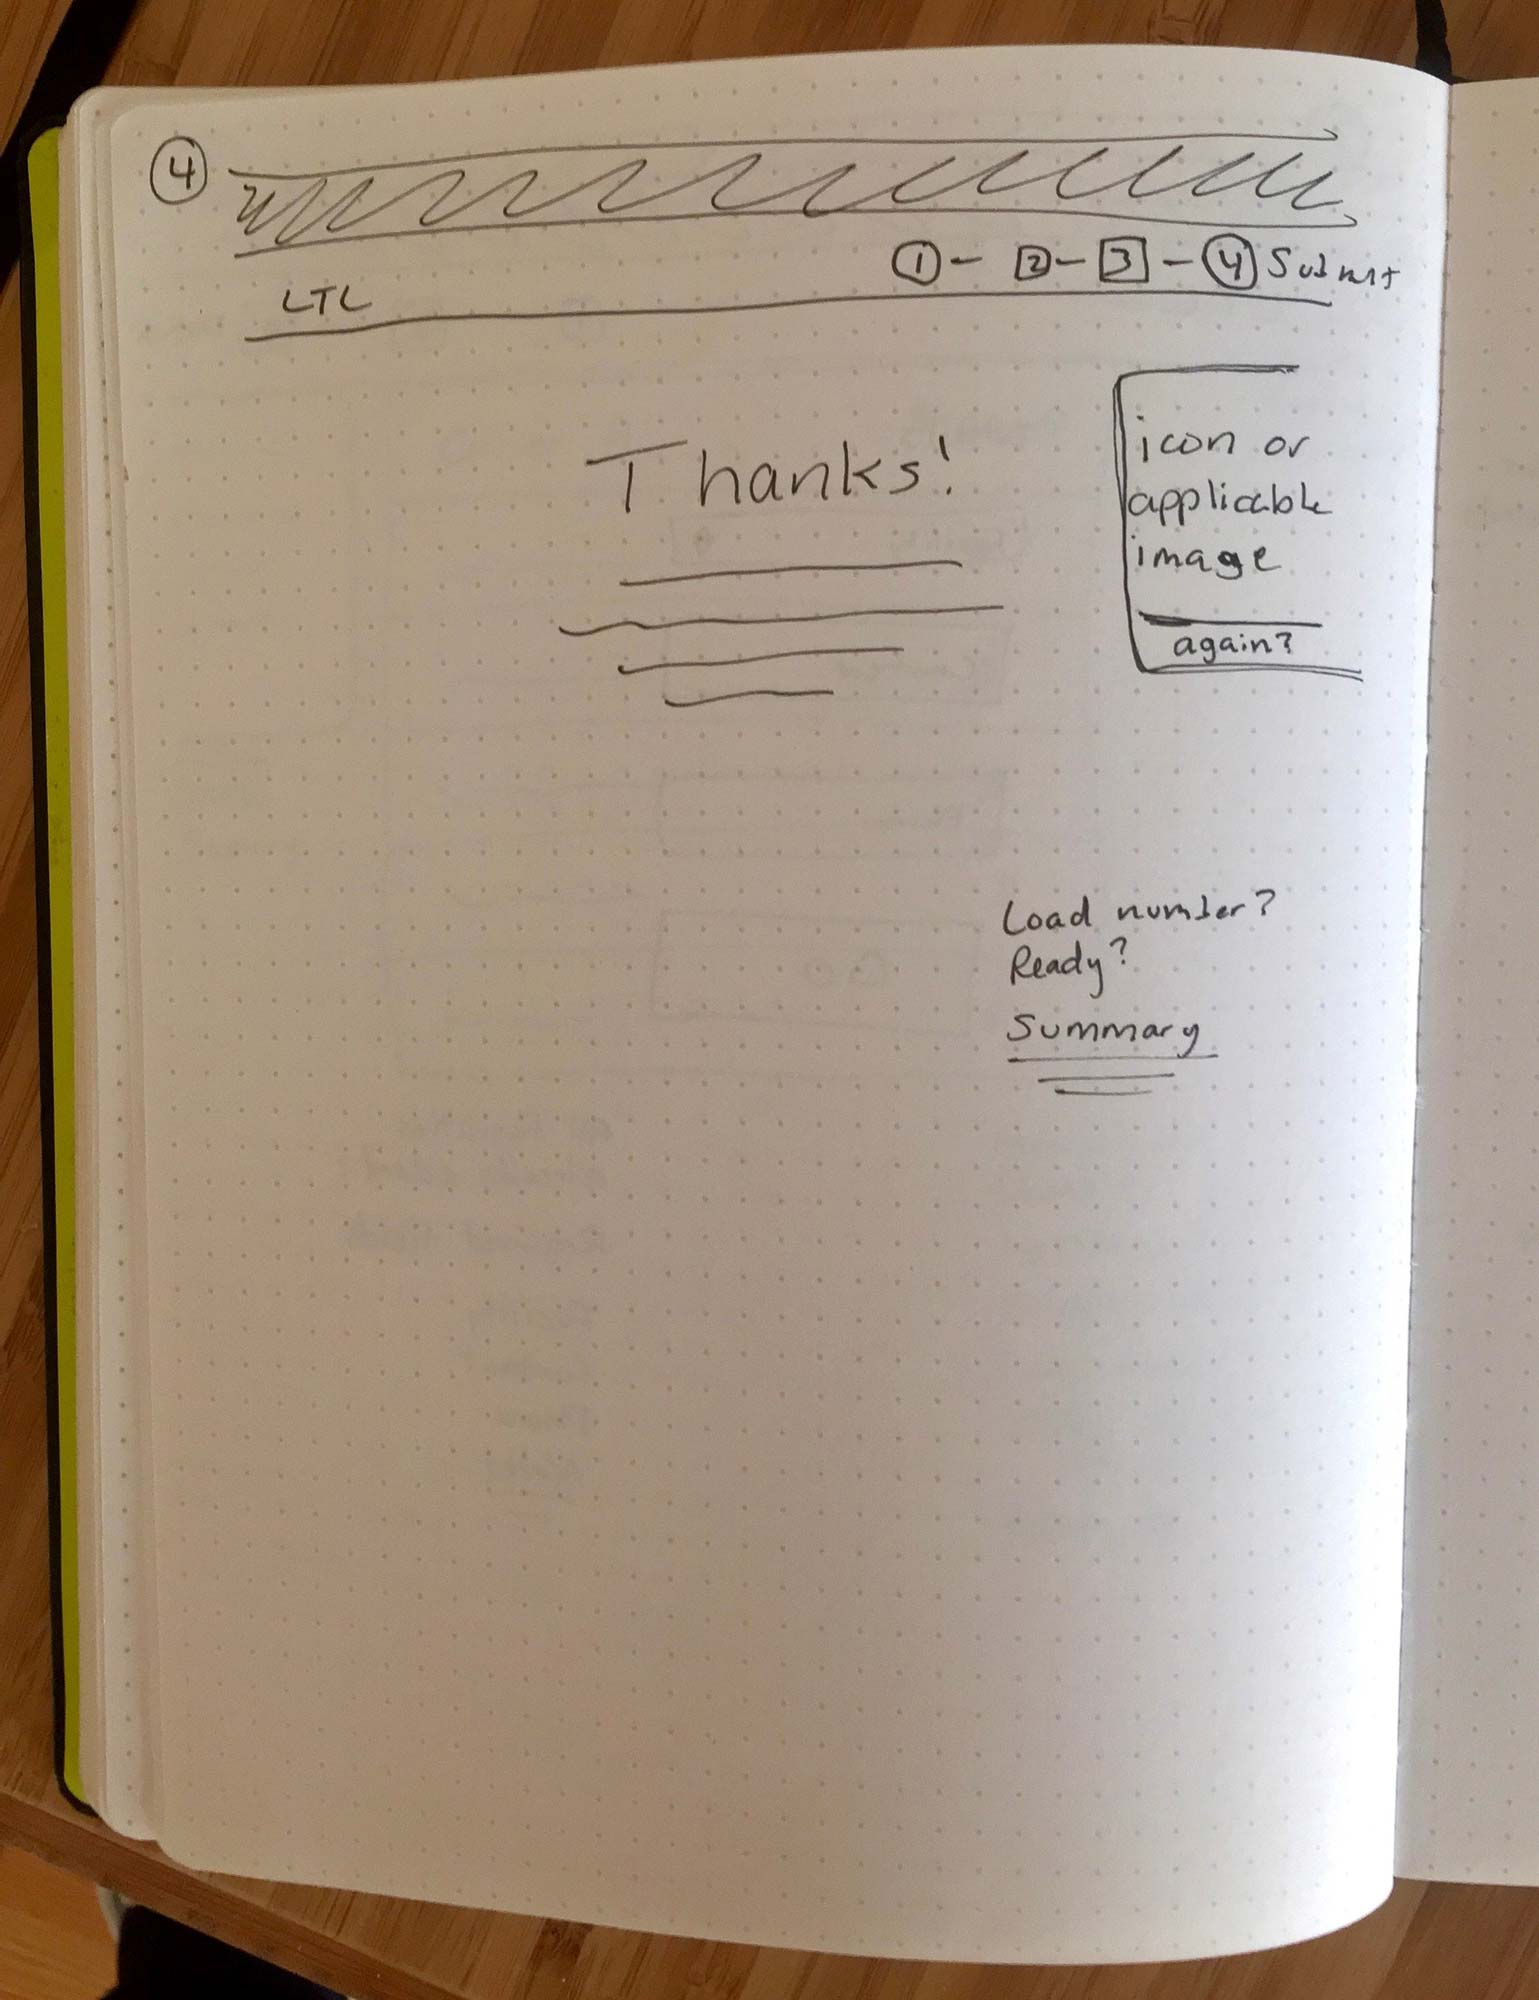 4
1 - 2 - 3 - 4 Submit
LTL
Thanks!
icon or
applicable
image
again?
Load number?
Ready?
Summary